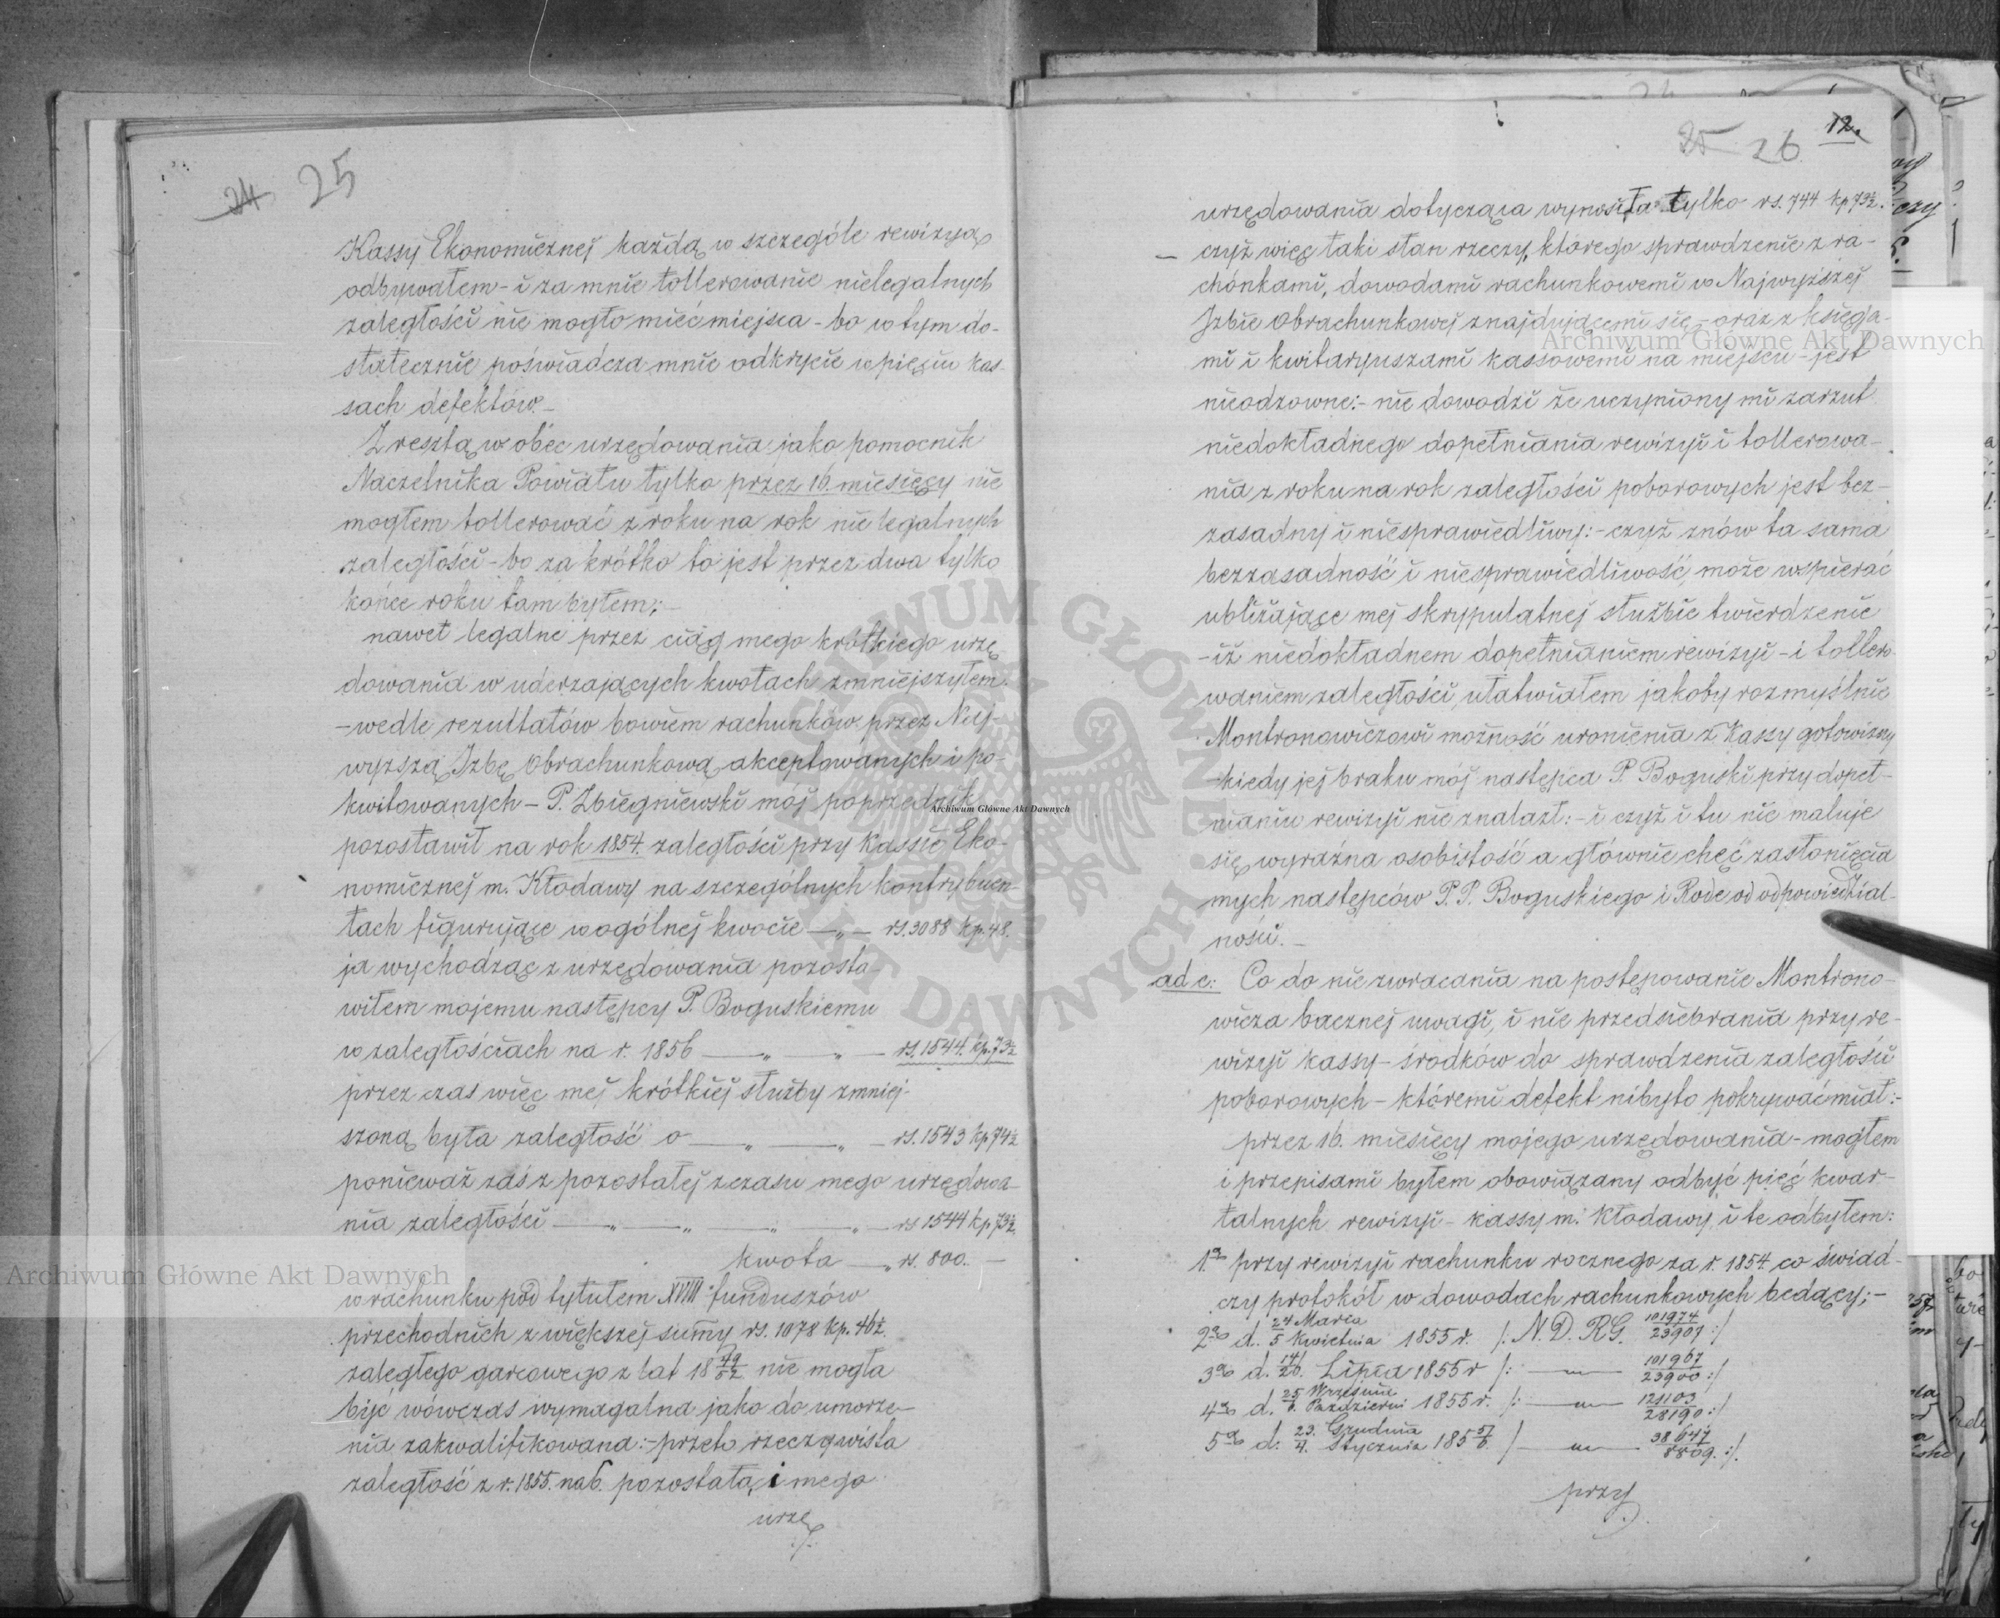 24 25
Kassy Ekonomicznej każdą w szczególe rewizyą
odbywałem – i za mnie tollerowanie nielegalnych
zaległości nie mogło mieć miejsca – bo w tym do-
statecznie poświadcza mnie odkrycie w pięciu kas-
sach defektów. –
Zresztą w obec urzędowania jako pomocnik
Naczelnika Powiatu tylko przez 16. miesięcy nie
mogłem tollerować z roku na rok nie legalnych
zaległości – bo za krótko to jest przez dwa tylko
końce roku tam byłem; –
nawet legalne przez ciąg mego krótkiego urzę
dowania w uderzających kwotach zmniejszyłem.
– wedle rezultatów bowiem rachunków przez Naj-
wyższą Izbę Obrachunkową akceptowanych i po-
kwitowanych – P. Zbiegniewski mój poprzednik
pozostawił na rok 1854. zaległości przy Kassie Eko-
nomicznej m. Kłodawy na szczególnych kontrybuen-
tach figurujące w ogólnej kwocie — „ — rs. 3088 kp. 48.
ja wychodząc z urzędowania pozosta-
wiłem mojemu następcy P. Boguskiemu
w zaległościach na r. 1856 — „ — „ — rs. 1544. kp. 73½
przez czas więc mej krótkiej służby zmniej-
szoną była zaległość o — „ — „ — rs. 1543 kp 74½
ponieważ zaś z pozostałej z czasu mego urzędowa-
nia zaległości — „ — „ — „ — „ — rs 1544 kp 73½
kwota — „ rs. 800. —
w rachunku pod tytułem XVIII funduszów
przechodnich z większej sumy rs. 1078 kp. 46½
zaległego garcowego z lat 18 49/52 nie mogła
być wówczas wymagalna jako do umorze-
nia zakwalifikowana: – przeto rzeczywista
zaległość z r. 1855. na 6. pozostała, i mego
urzę
25 26 12.
urzędowania dotycząca wynosiła tylko rs. 744 kp 73½.
– czyż więc taki stan rzeczy, którego sprawdzenie z ra-
chónkami, dowodami rachunkowemi w Najwyższej
Izbie Obrachunkowej znajdującemi się – oraz z księga-
mi i kwitaryuszami kassowemi na miejscu – jest
nieodzowne: – nie dowodzi że uczyniony mi zarzut
niedokładnego dopełniania rewizyi i tollerowa-
nia z roku na rok zaległości poborowych jest bez-
zasadny i niesprawiedliwy: – czyż znów ta sama
bezzasadność i niesprawiedliwość, może wspierać
ubliżające mej skrypulatnej służbie twierdzenie
– iż niedokładnem dopełnianiem rewizyi – i tollero-
waniem zaległości, ułatwiałem jakoby rozmyślnie
Montronowiczowi możność uronienia z Kassy gotowizny
– kiedy jej braku mój następca P. Boguski przy dopeł-
nianiu rewizyi nie znalazł: – i czyż i tu nie maluje
się wyraźna osobistość a głównie chęć zasłonięcia
mych następców P. P. Boguskiego i Rode od odpowiedzial-
ności. –
ad c: Co do nie zwracania na postępowanie Montrono-
wicza bacznej uwagi, i nie przedsiebrania przy re-
wizyi kassy – środków do sprawdzenia zaległości
poborowych – któremi defekt nibyto pokrywać miał: –
przez 16. miesięcy mojego urzędowania – mogłem
i przepisami byłem obowiązany odbyć pięć kwar-
talnych rewizyi – kassy m. Kłodawy, i te odbyłem:
1.º przy rewizyi rachunku rocznego za r. 1854. co świad-
czy protokół w dowodach rachunkowych będący; –
2º d. 24 Marca / 5 Kwietnia 1855 r. /: N. D. RG. 101974/23907 :/
3º d. 14/26. Lipca 1855 r /: — „ — 101967/23900 :/
4º d. 25 Września / 7. Październi 1855 r. /: — „ — 121103/28190 :/
5º d. 23. Grudnia / 4. Stycznia 185 5/6 / — „ — 38647/8809. :/.
przy
Archiwum Główne Akt Dawnych
Archiwum Główne Akt Dawnych
Archiwum Główne Akt Dawnych
ARCHIWUM GŁÓWNE AKT DAWNYCH